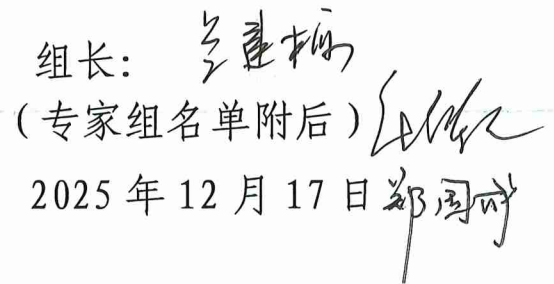 组长：
（专家组名单附后）
2025 年 12 月 17 日 郑国成